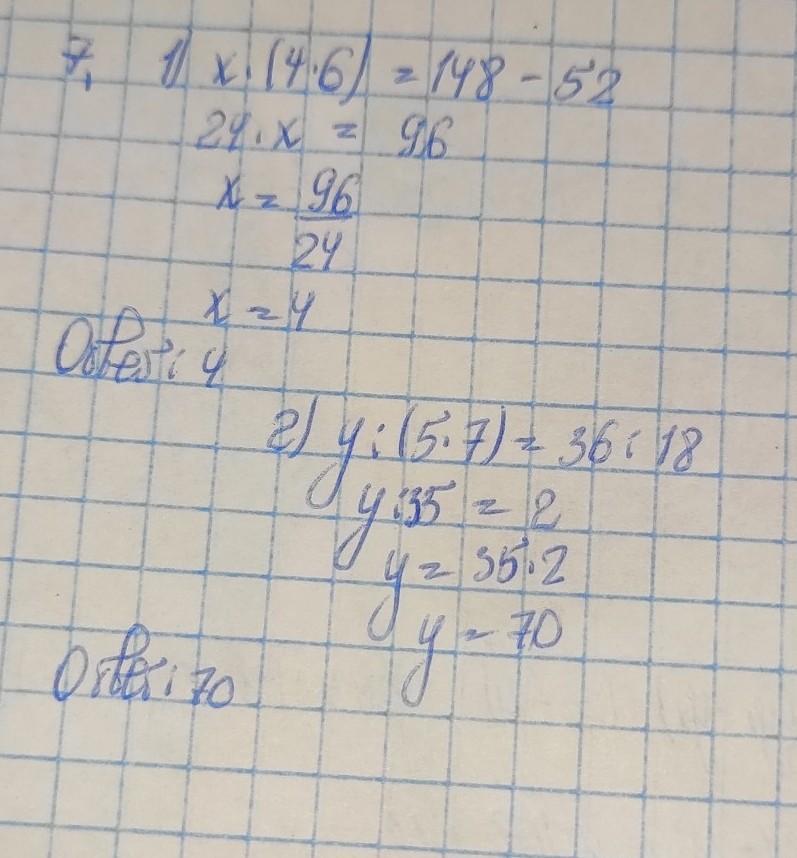 7. 1) x·(4·6) = 148 - 52
24·x = 96
x = 96
24
x = 4
Ответ: 4
2) y:(5·7) = 36:18
y:35 = 2
y = 35·2
y = 70
Ответ: 70